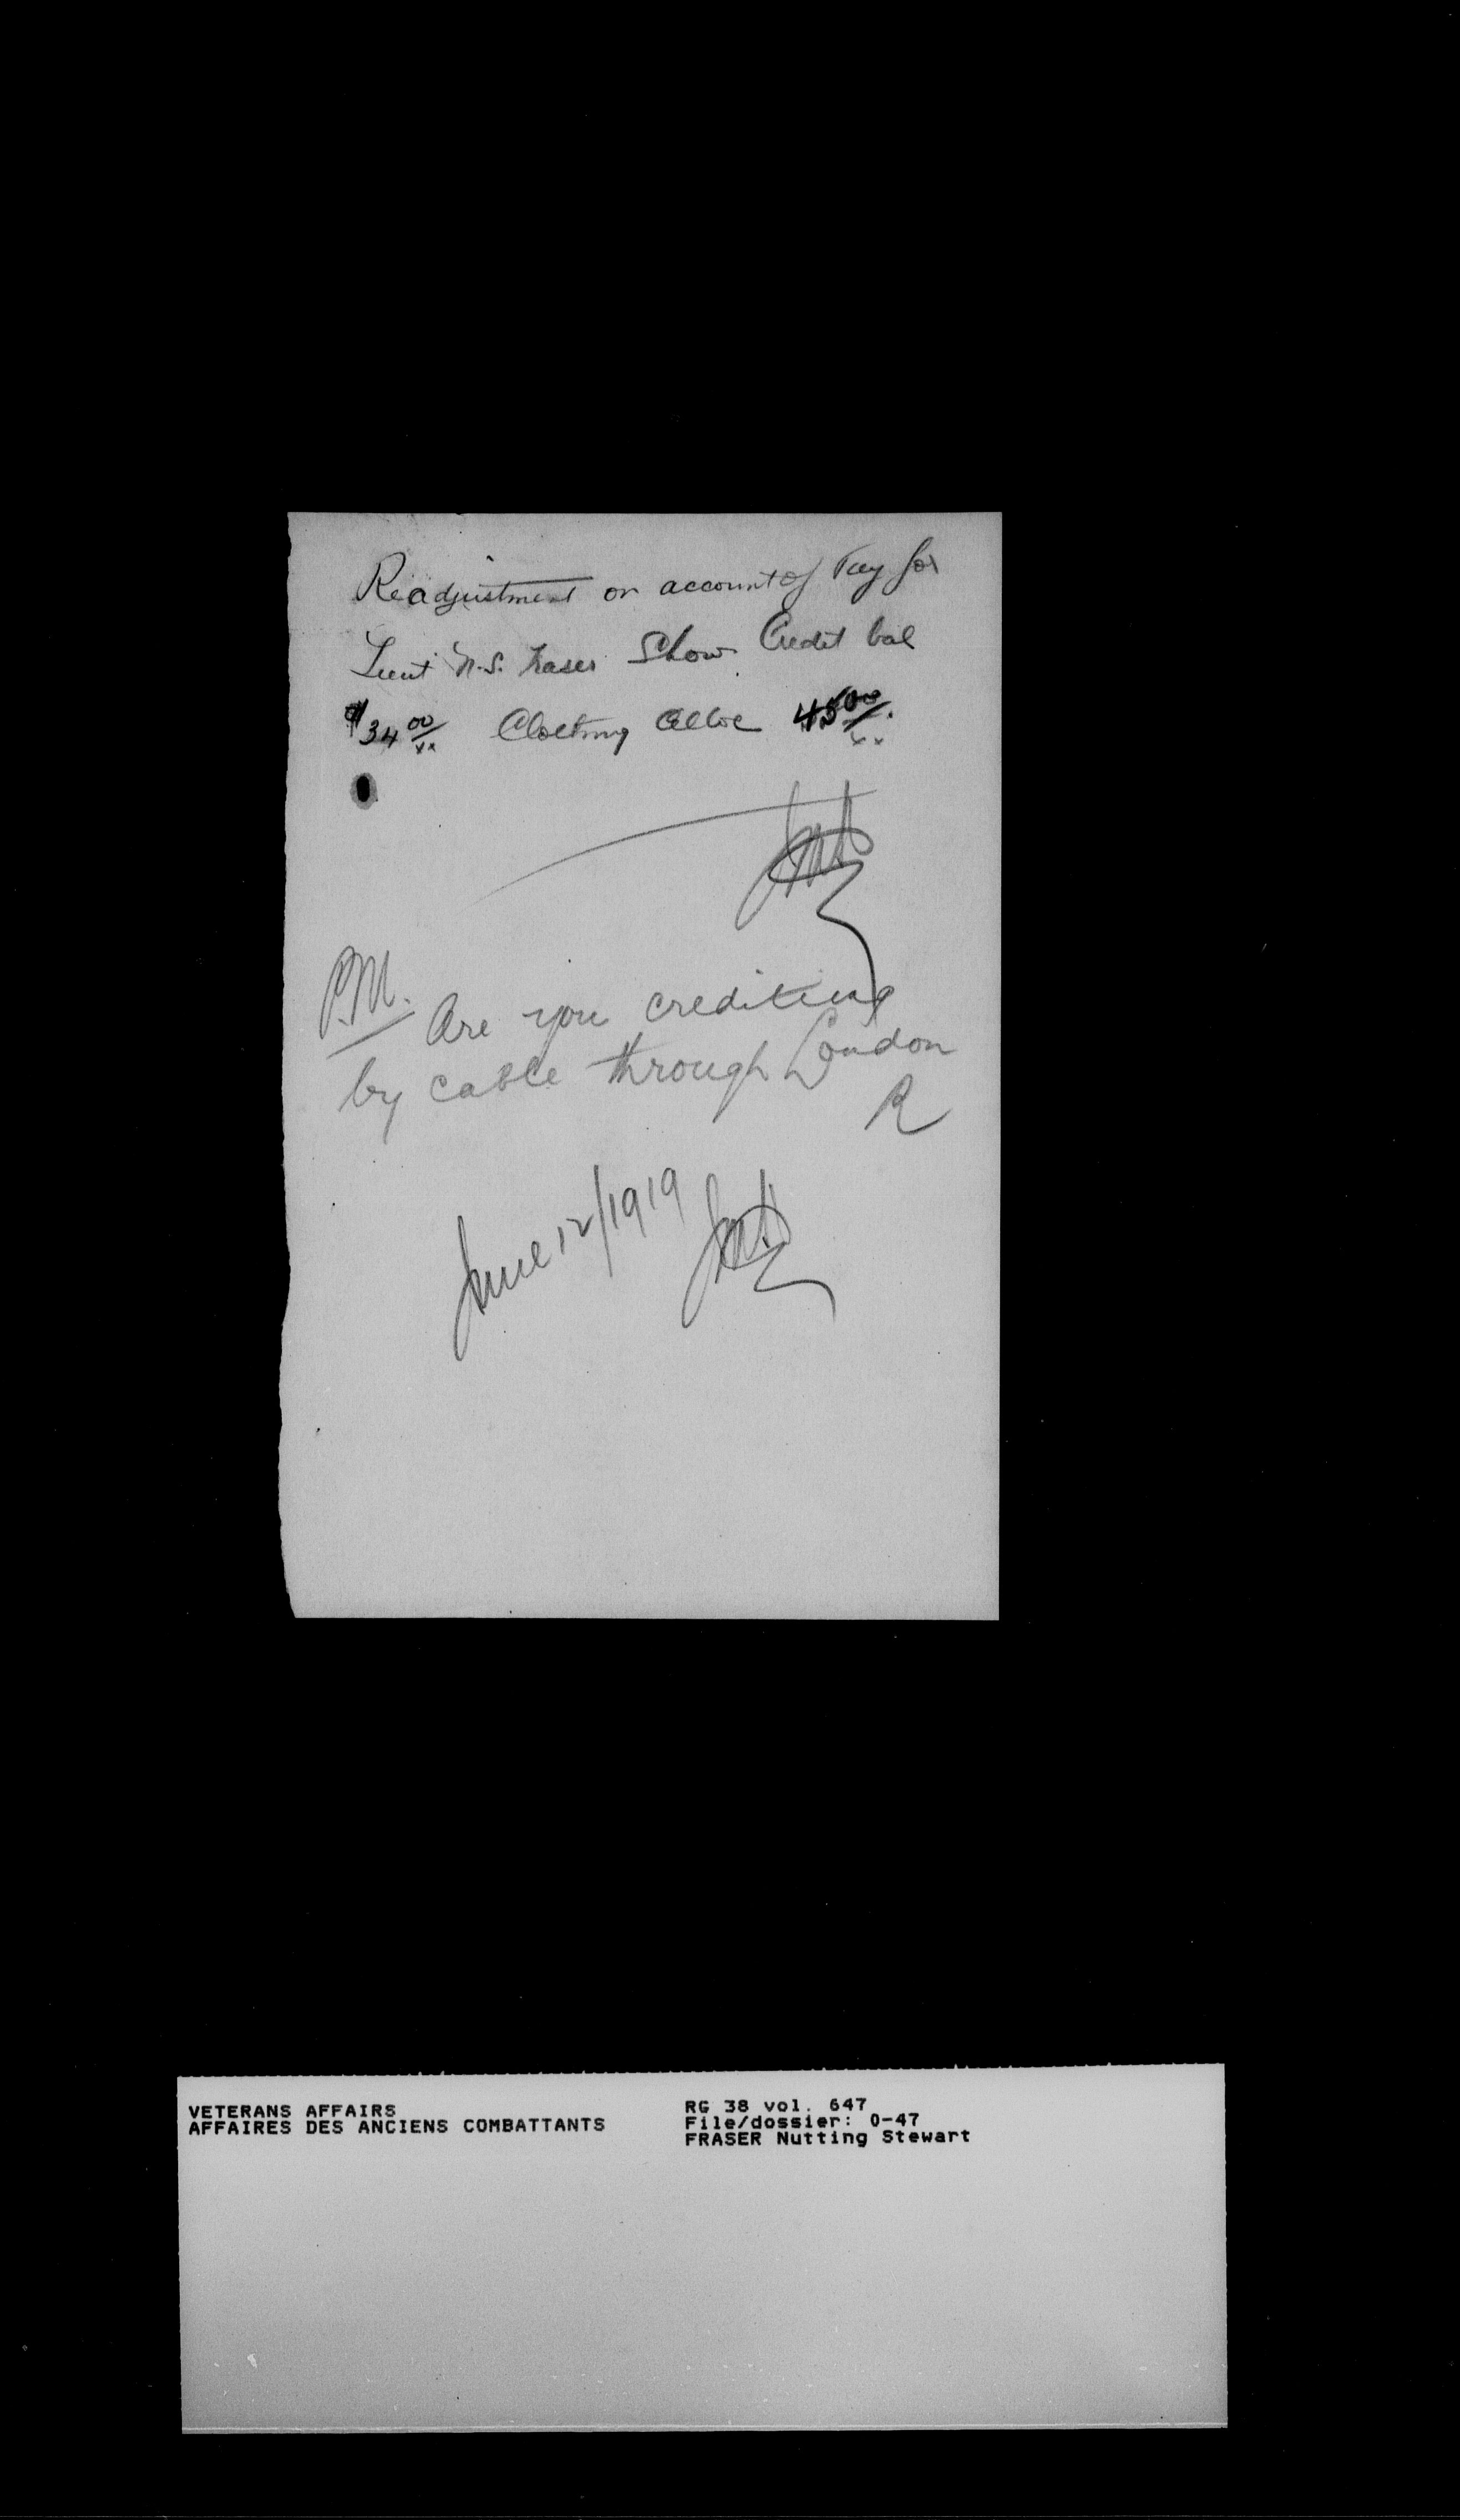 Readjustment on account of Pay for
Lieut N.S. Fraser Show Credit bal
$34 00/xx Clothing Alloc 45 00/xx.
P.M. Are you crediting
by cable through London
R
June 12/1919
VETERANS AFFAIRS
AFFAIRES DES ANCIENS COMBATTANTS
RG 38 vol. 647
File/dossier: 0-47
FRASER Nutting Stewart